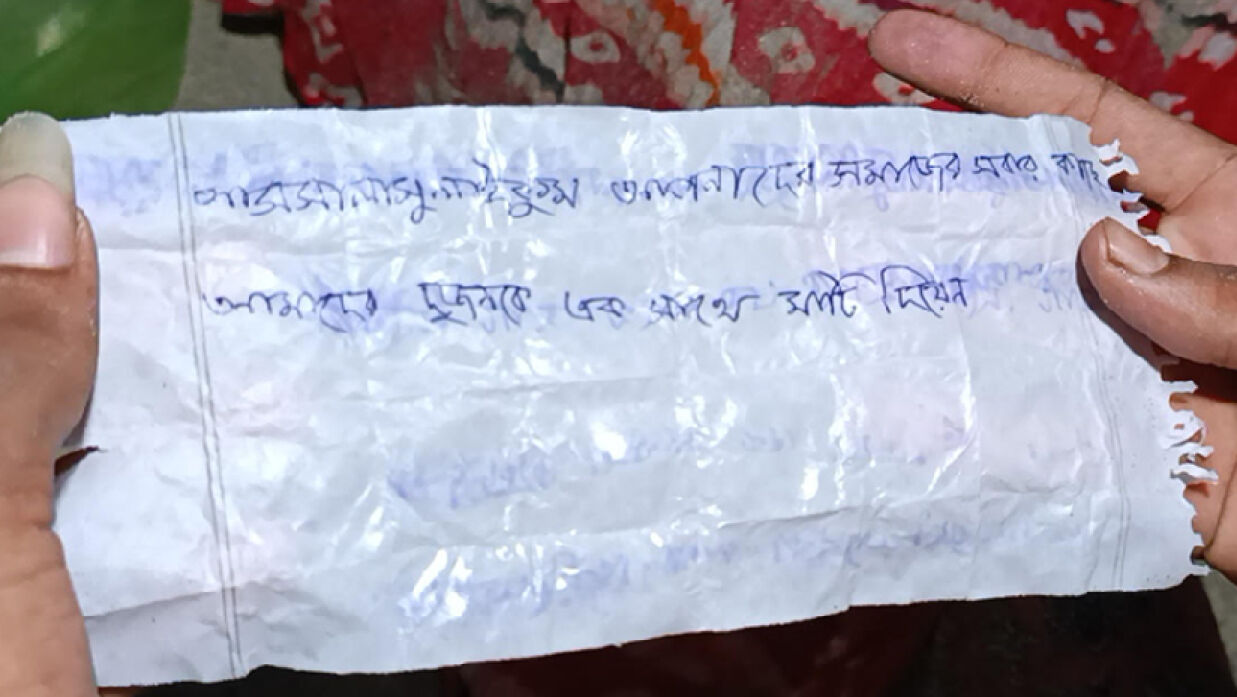 আসসালামুলাইকুম আপনাদের সমাজের সবার কাছে
আমাদের দুজনকে এক সাথে মাটি দিয়েন